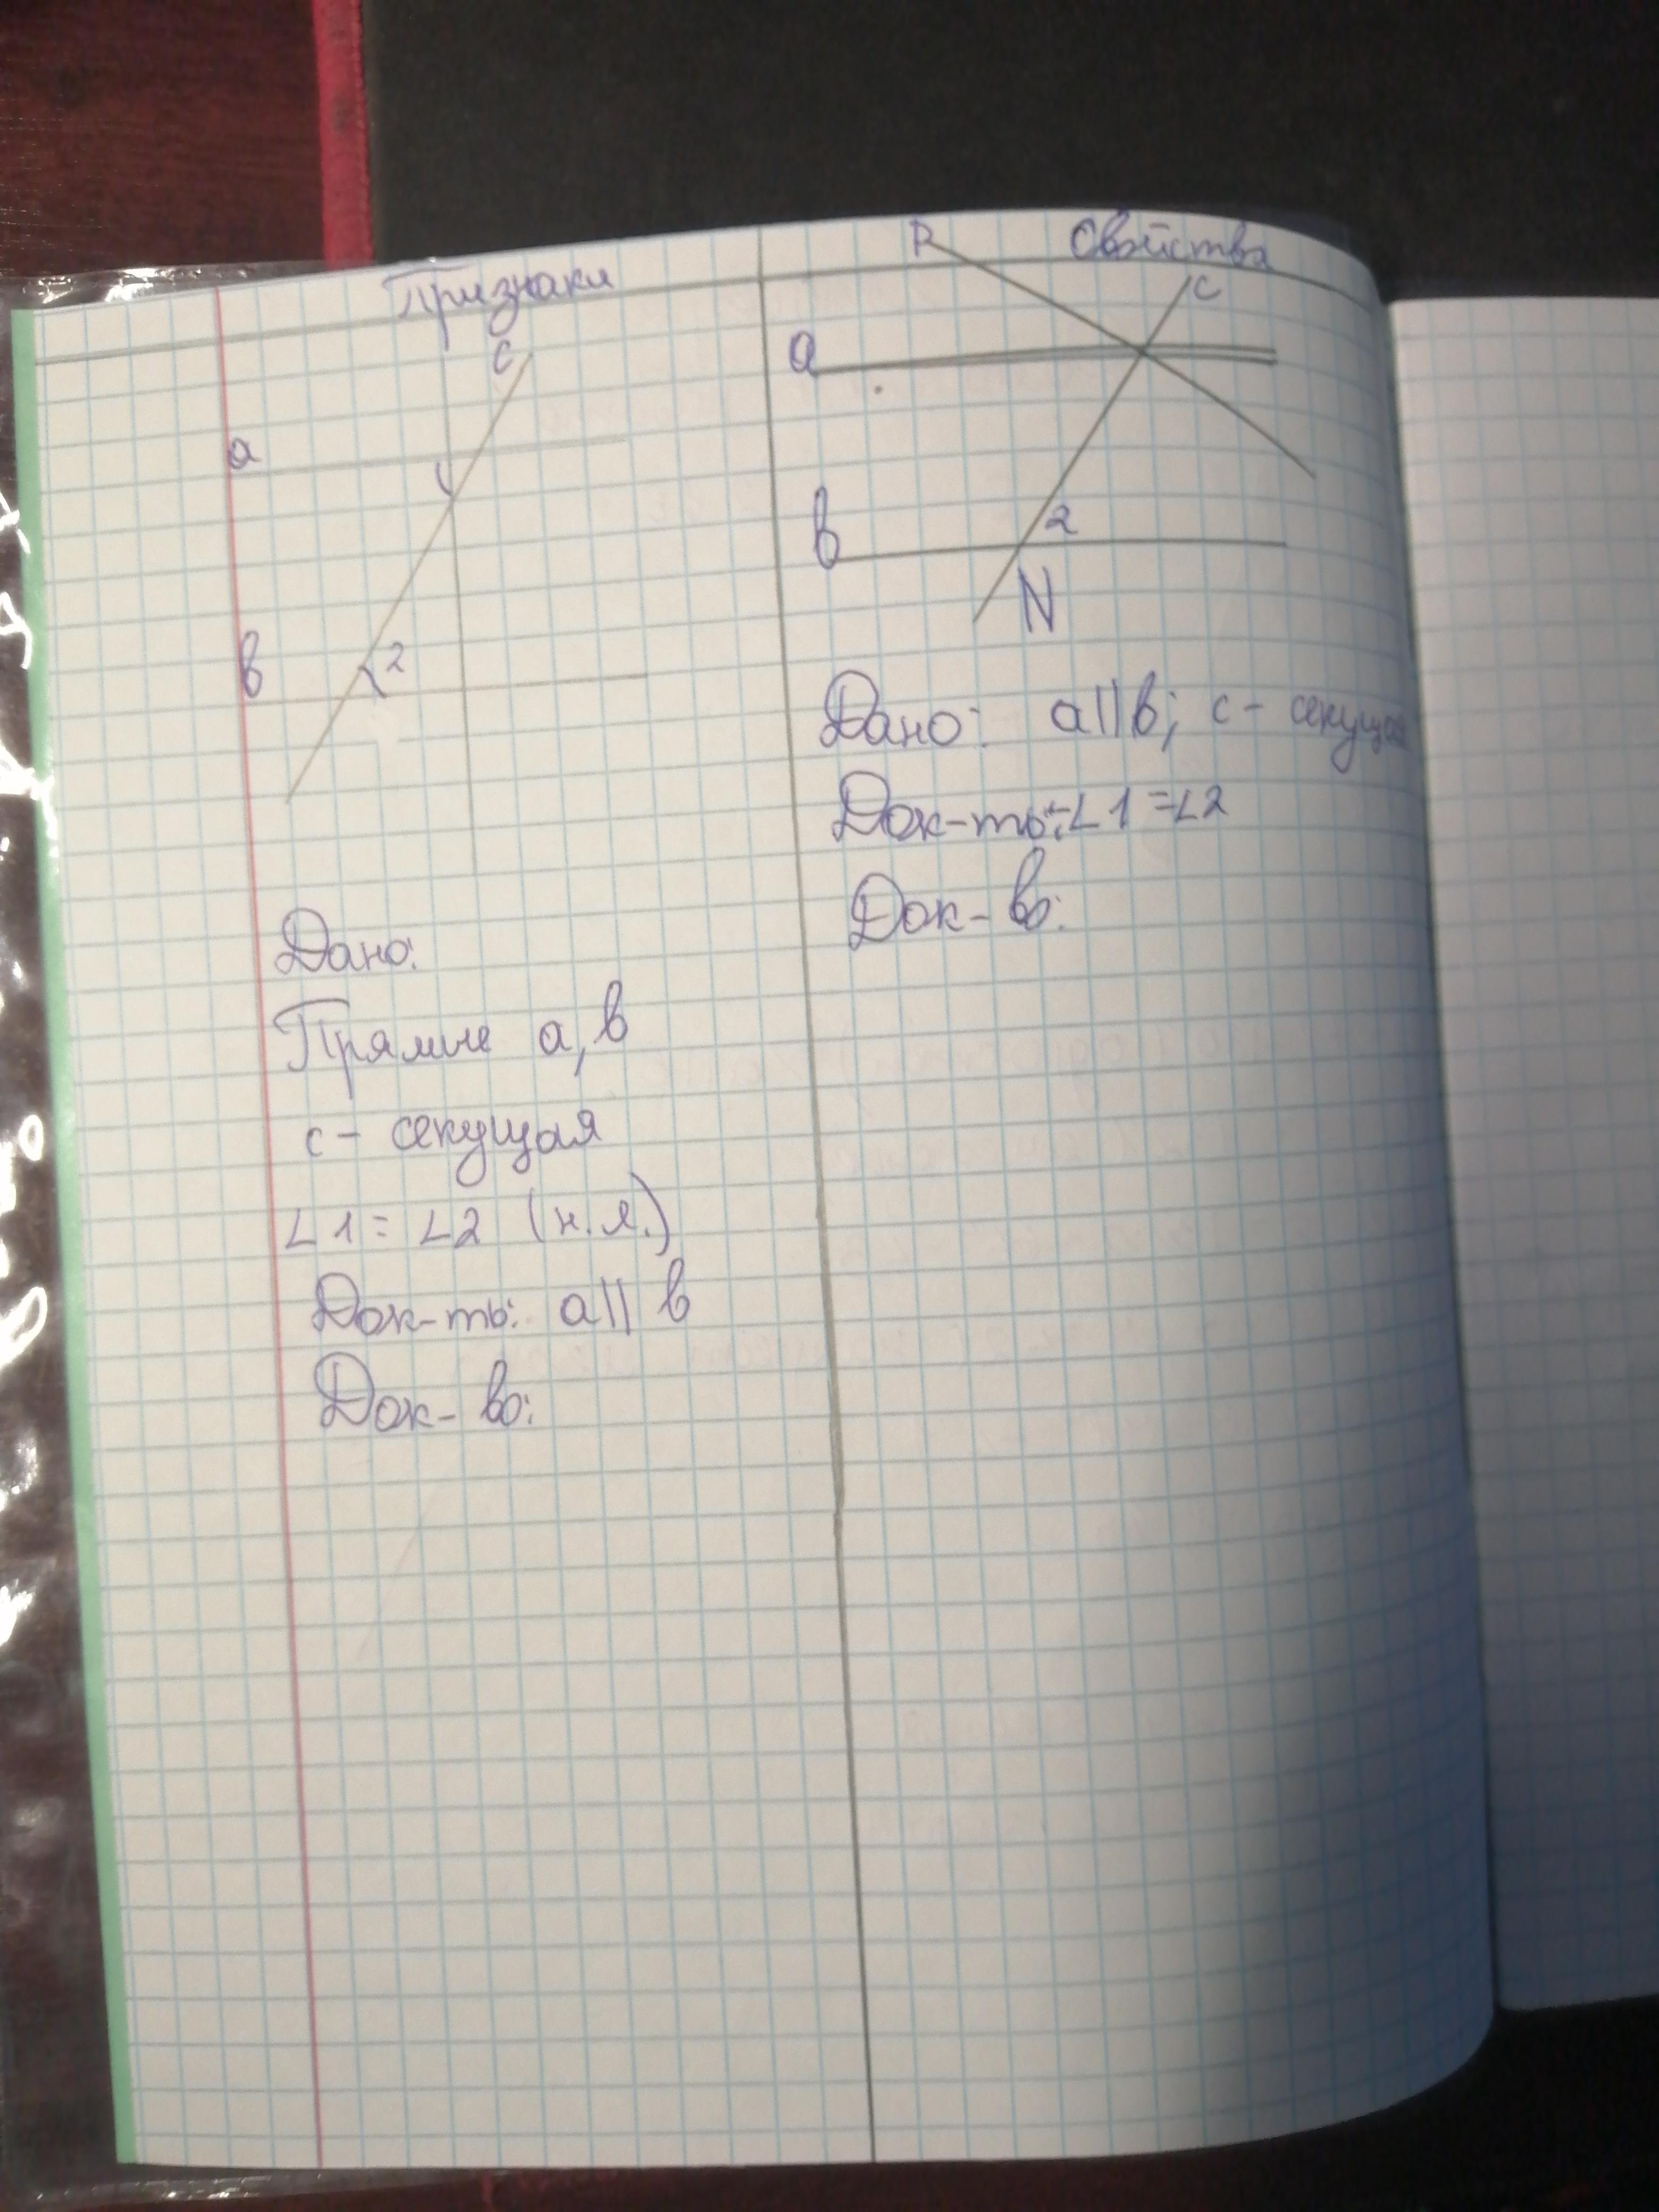 Признаки
c
a
1
в
2
Дано:
Прямые a, в
c - секущая
∠1 = ∠2 (н.л.)
Док-ть: a || в
Док-во:
Свойства
P
c
a
в
2
N
Дано: a || в; c - секущая
Док-ть: ∠1 = ∠2
Док-во: